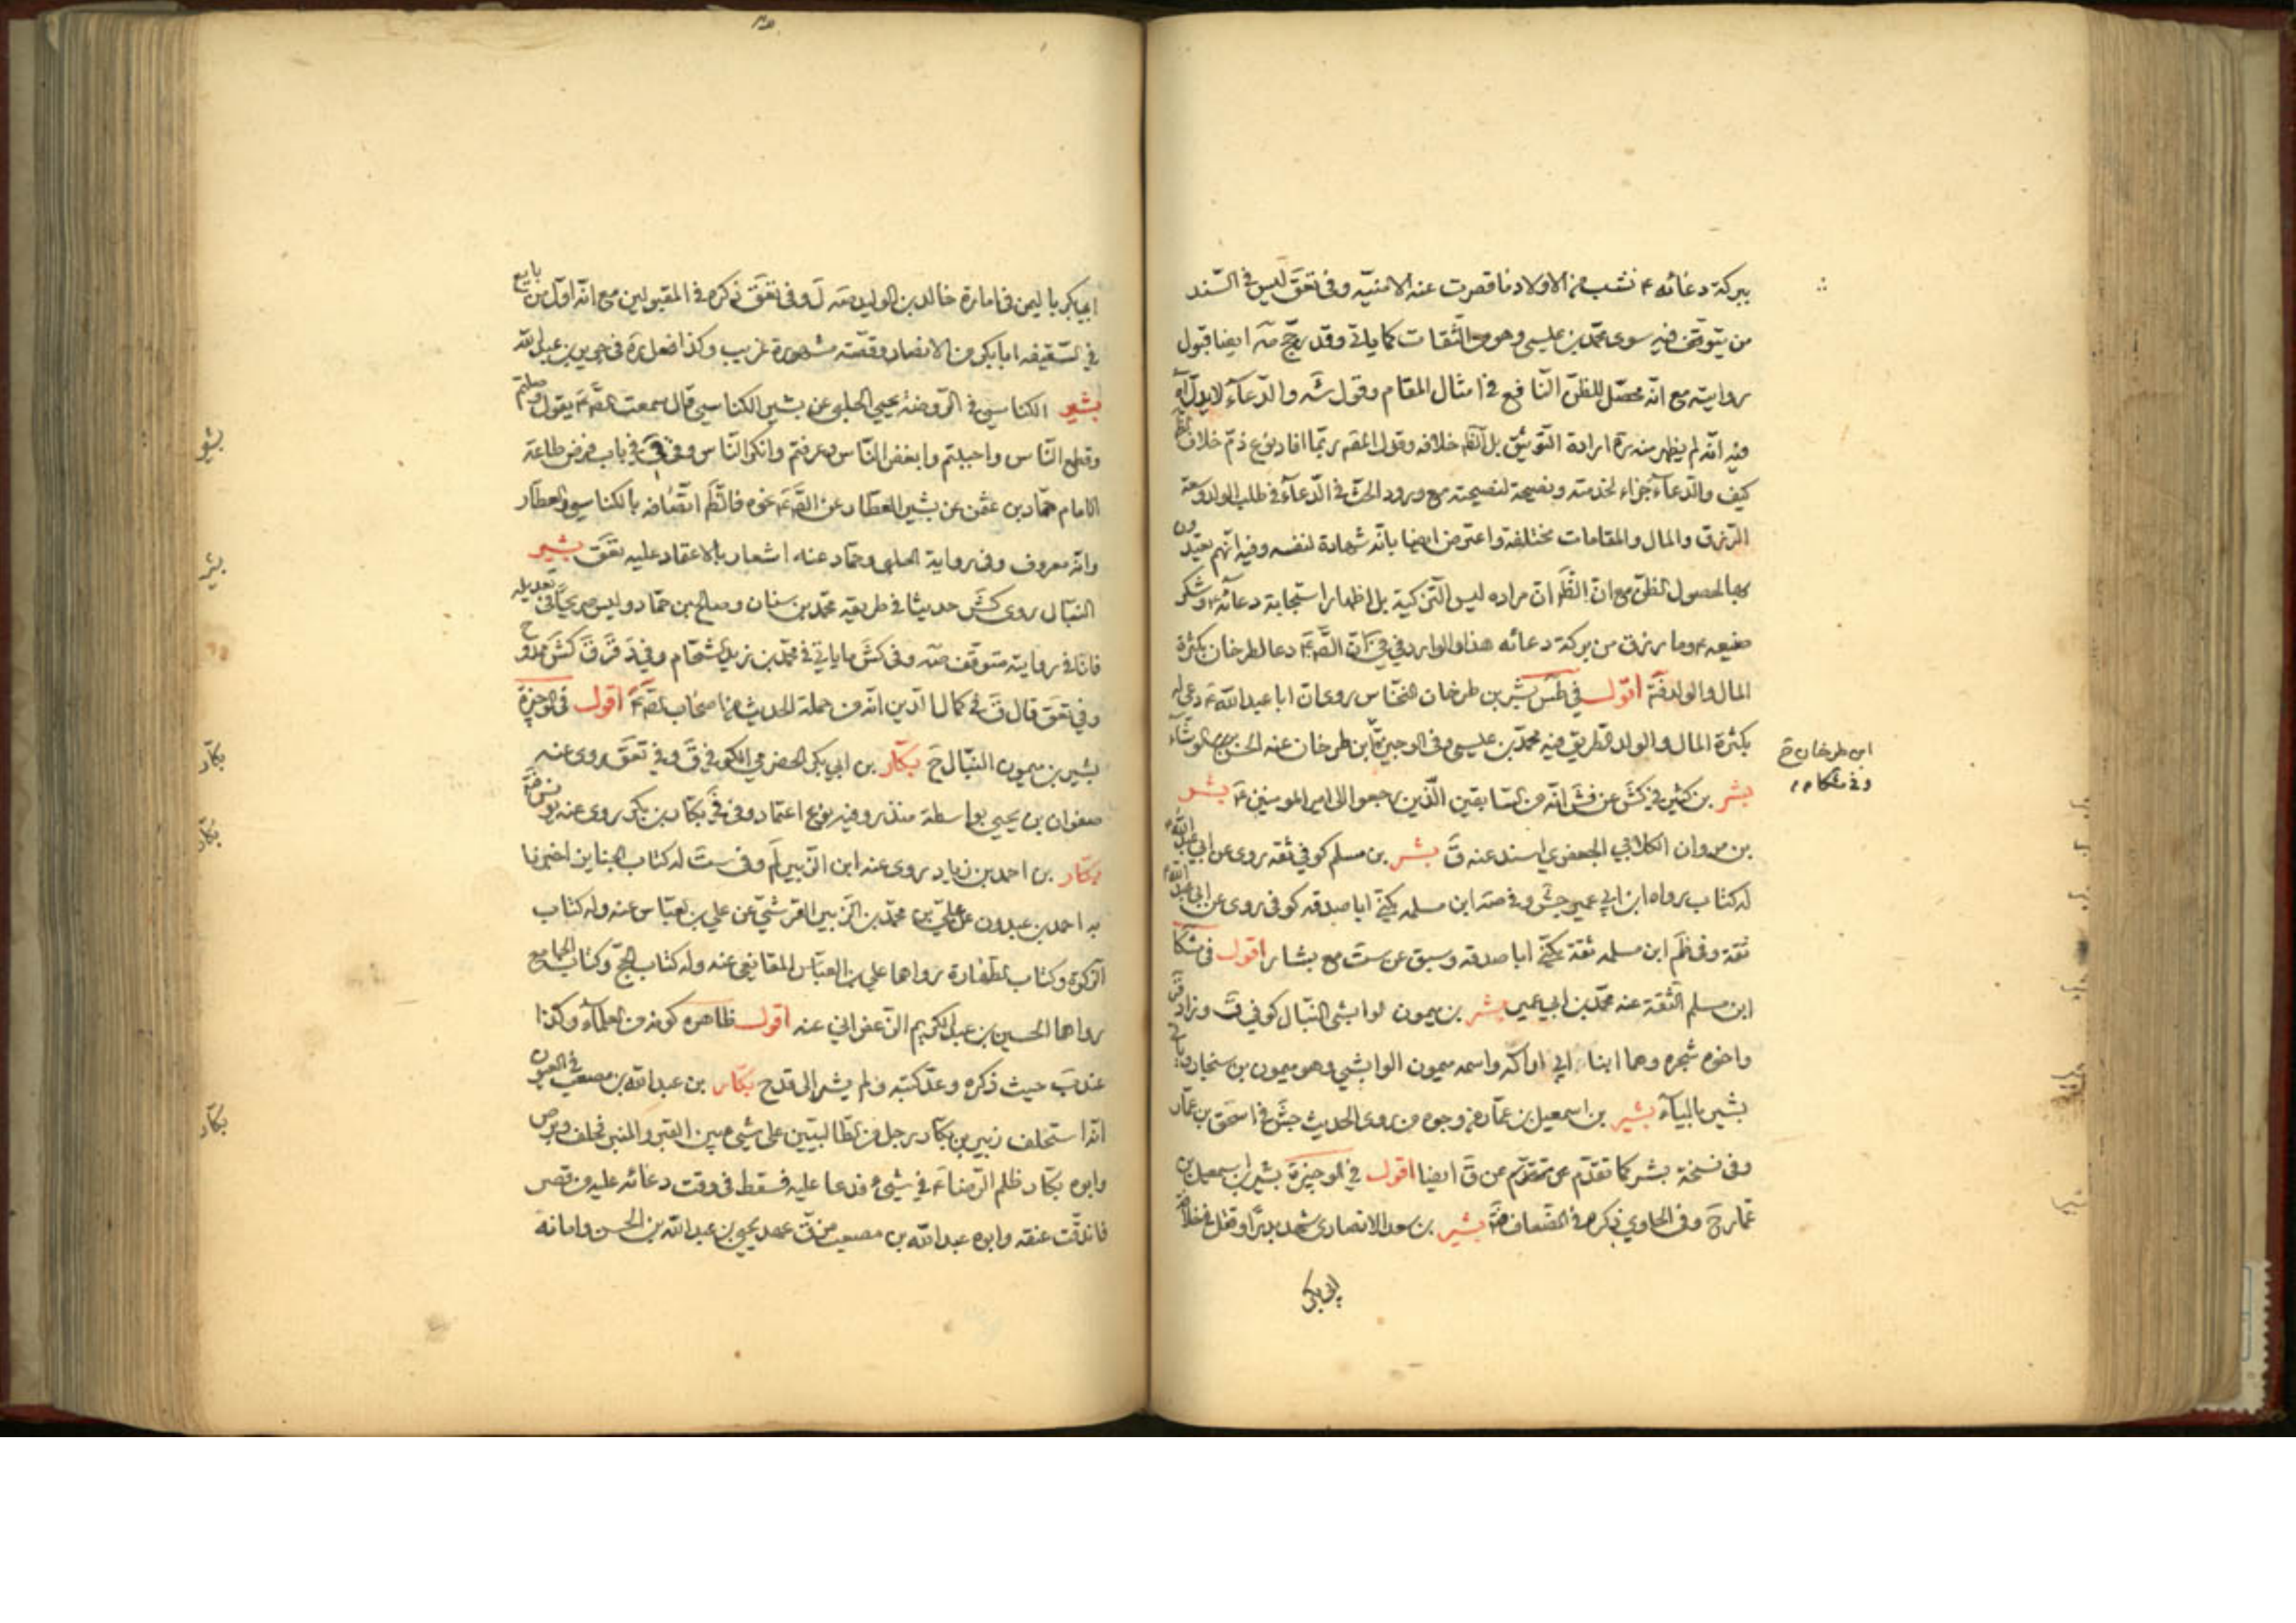 ببركة دعائه ء نشب من الاولاد ما قصرت عنه الامنية وفى تعق ليس فى السند
من يتوقف فيه سوى محمد بن عيسى وهو من الثقات كما ياتى وقد رجح مه ايضا قبول
روايته مع انه محصل للظن النافع فى امثال المقام وقول شه والدعاء لا يدل اه
فيه انه لم يظهر منه ره ارادة التوثيق بل الظ خلافه وقول المقه ربما افاد نوع ذم خلاف الظ
كيف والدعاء جزاء لخدمته ونصيحة لنصيحته مع ورود الحث فى الدعاء فى طلب الولد وسعة
الرزق والمال والمقامات مختلفة واعترض ايضا بانه شهادة لنفسه وفيه انهم يعتدون
بها لحصول الظن مع ان الظ ان مراده ليس التزكية بل اظهار استجابة دعائه ء وشكر
صنيعه ء وما رزق من بركة دعائه هذا والوارد فى فى ان الص ء دعا لطرخان بكثرة
المال والولد فته اقول فى طس بشر بن طرخان النخاس روى ان ابا عبد الله ء دعى له
بكثرة المال والولد الطريق فيه محمد بن عيسى وفى الوجيزة ابن طرخان عنه الحسن الوشاء
ابن طرخان ح
وفى مشكا
بشر بن كثير فى كش عن فش انه من السابقين الذين رجعوا الى امير المومنين ء بشر
بن مروان الكلابى الجعفرى اسند عنه ق بشر بن مسلم كوفى ثقه روى عن ابى عبد الله ء
له كتاب رواه ابن ابى عمير جش وفى صه ابن مسلمه يكنى ابا صدقه كوفى روى عن ابى عبد الله ء
ثقة وفى ظم ابن مسلمه ثقة يكنى ابا صدقه وسبق عن ست مع بشار اقول فى مشكا
ابن مسلم الثقة عنه محمد بن ابى عمير بشر بن ميمون الوابشى النبال كوفى ق وزاد قر
واخوه شجره وهما ابنا ابى اراكه واسمه ميمون الوابشى وهو ميمون بن سنجار وياتى
بشير بالياء بشير بن اسمعيل بن عمار من وجوه من روى الحديث جش فى اسحق بن عمار
وفى نسخة بشر كما تقدم عن ق ايضا اقول فى الوجيزة بشير بن اسمعيل بن
عمار ح وفى الحاوى ذكره فى الضعاف بشير بن سعد الانصارى شهد بدرا وقتل فى خلافة
ابى بكر
ابى بكر باليمن فى امارة خالد بن الوليد صه ل وفى تعق ذكره فى المقبولين مع انه اول من بايع
فى السقيفه ابا بكر من الانصار وقصته مشهورة غريب وكذا فعل ره فى جرير بن عبد الله
بشير الكناسى فى الروضة يحيى الحلبى عن بشير الكناسى قال سمعت الص ء يقول وصلتم
وقطع الناس واحببتم وابغض الناس وعرفتم وانكر الناس وفى فى باب فرض طاعة
الامام حماد بن عثمن عن بشير العطار عن الص ء نحوه فالظ اتصافه بالكناسى والعطار
وانه معروف وفى رواية الحلبى وحماد عنه اشعار بالاعتماد عليه تعق بشير
النبال روى كش حديثا فى طريقه محمد بن سنان وصالح بن حماد وليس صريحا فى تعديله
فانا فى روايته متوقف صه وفى كش ما ياتى فى محمد بن زيد الشحام
وفى تعق قال ق فى كمال الدين انه من حملة الحديث من اصحاب الص ء اقول فى الوجيزة
بشير بن ميمون النبال ح بكار بن ابى بكر الحضرمى الكوفى ق وفى تعق روى عنه
صفوان بن يحيى بواسطة منذر وفيه نوع اعتماد وفى بكار بن بكر روى عنه يونس
بكار بن احمد بن زياد روى عنه ابن الزبير لم وفى ست له كتاب الجنايز اخبرنا
به احمد بن عبدون عن على بن محمد بن الزبير القرشى عن على بن العباس عنه وله كتاب
الزكوة وكتاب الطهارة رواهما على بن العباس المقانعى عنه وله كتاب الحج وكتاب الجامع
رواهما الحسين بن عبد الكريم الزعفرانى عنه اقول ظاهره كونه من العلماء وكذا
عند ب حيث ذكره وعد كتبه ولم يشر الى قدح بكار بن عبد الله بن مصعب فى العيون
انه استحلف زبير بن بكار رجل من الطالبيين على شئ بين القبر والمنبر فحلف وبرص
وابوه بكار ظلم الرضا ء فى شئ فدعا عليه فسقط فى وقت دعائه عليه من قصر
فاندقت عنقه وابوه عبد الله بن مصعب مزق عهد يحيى بن عبد الله بن الحسن وامانه
بشير
بشير
بكار
بكار
بكار